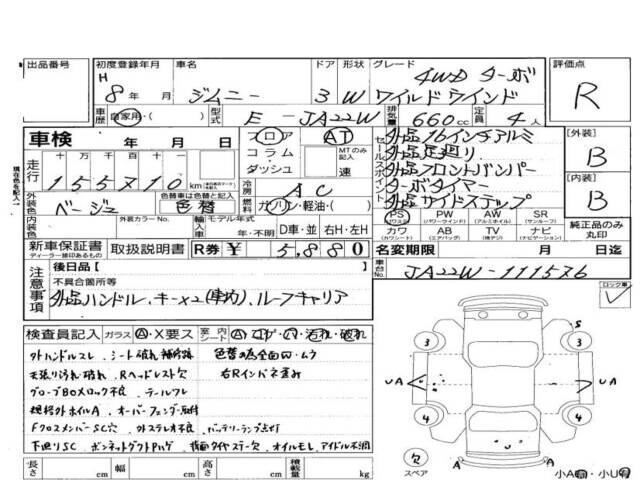 出品番号 初度登録年月 車名 ドア 形状 グレード 評価点
H 8年 月 ジムニー 3 W 4WD ターボ ワイルドウインド R
車歴 自家用・( ) 型式 E-JA22W 排気量 660cc 定員 4人
車検 年 月 日 フロア AT
コラム MTのみ記入
ダッシュ 速
走行 十 万 千 百 十 一
155710 km
冷房 AC
セールスポイント
社外16インチアルミ
社外足廻り
社外フロントバンパー
ターボタイマー
社外サイドステップ
[外装] B
[内装] B
現在色を記入
外装色 ベージュ 色替車は色替と記入 色替 燃料 ガソリン・軽油・( )
内装色 外装カラーNo. 輸入車 モデル年式 年・不明 D車・並 右H・左H
PS (パワステ) PW (パワーウインド) AW (アルミホイル) SR (サンルーフ)
カワ (カワシート) AB (エアバッグ) TV (地デジ) ナビ (ナビゲーション)
純正品のみ丸印
新車保証書 ディーラー捺印あるもの 取扱説明書 R券 ¥ 5,880
名変期限 月 日迄
車台No. JA22W-111576
ロック車
注意事項 後日品[ ]
不具合箇所等
社外品ハンドル、キー×2(車内)、ルーフキャリア
検査員記入 ガラス A・X要ス 室内 シート A・コゲ・穴・汚れ・破れ
外ハンドルスレ、シート破れ補修跡 色替の為全面ワ・ムラ
天張り汚れ破れ Rヘッドレスト欠 右Rインパネ歪み
グローブBOXロック不良
規格外ホイルA オーバーフェンダー取付
FクロスメンバーSC穴 外ステレオ不良 バッテリーランプ点灯
下廻りSC 背面タイヤステー欠 オイルモレ アイドル不調
3 3 S
UA UA
4 4
欠 スペア A A
長さ cm 幅 cm 高さ cm 積載量 kg
小A有・小U有